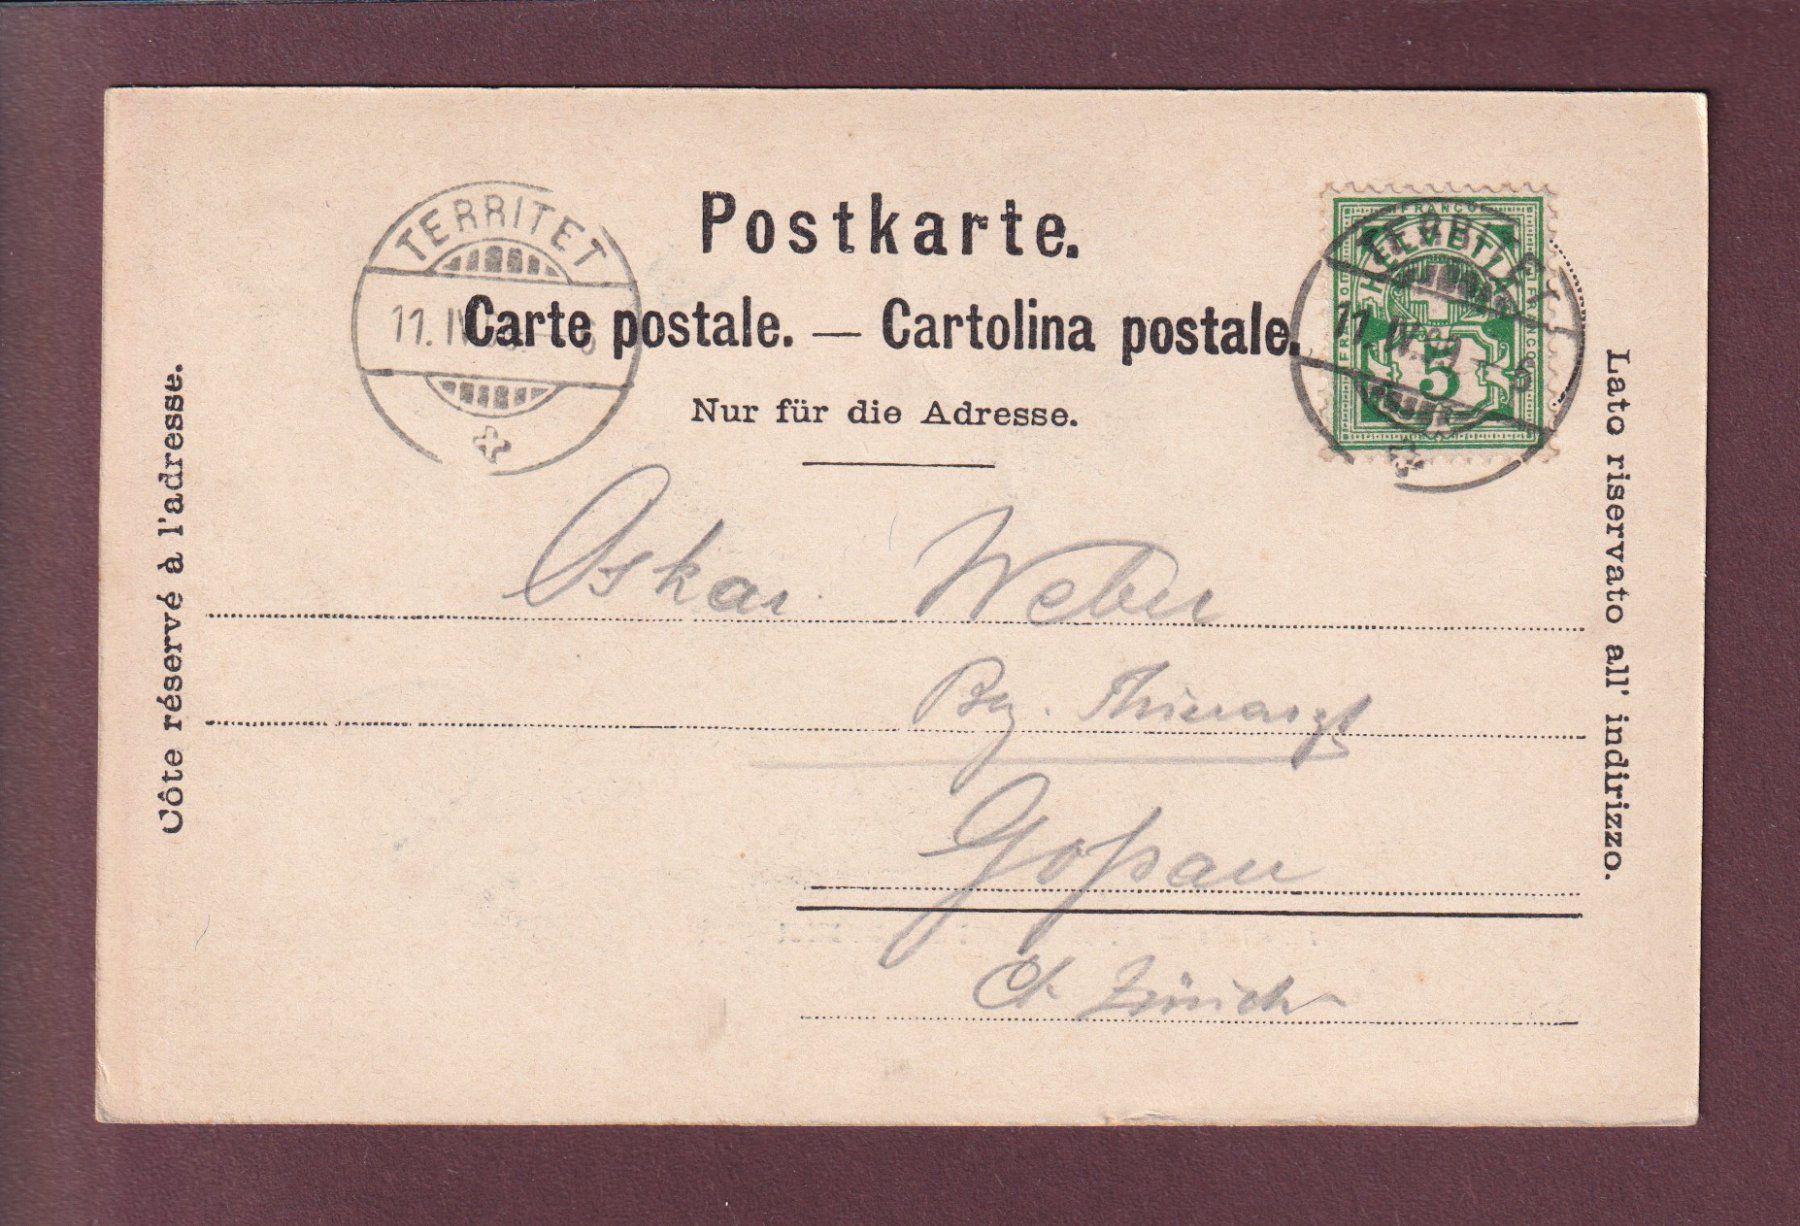 Postkarte.
Carte postale. — Cartolina postale.
Nur für die Adresse.
Côte réservé à l'adresse.
Lato riservato all' indirizzo.
TERRITET
11. IV
FRANCO
HELVETIA
5
Oskar Weber
Bz. Thierarzt
Goßau
Ct. Zürich